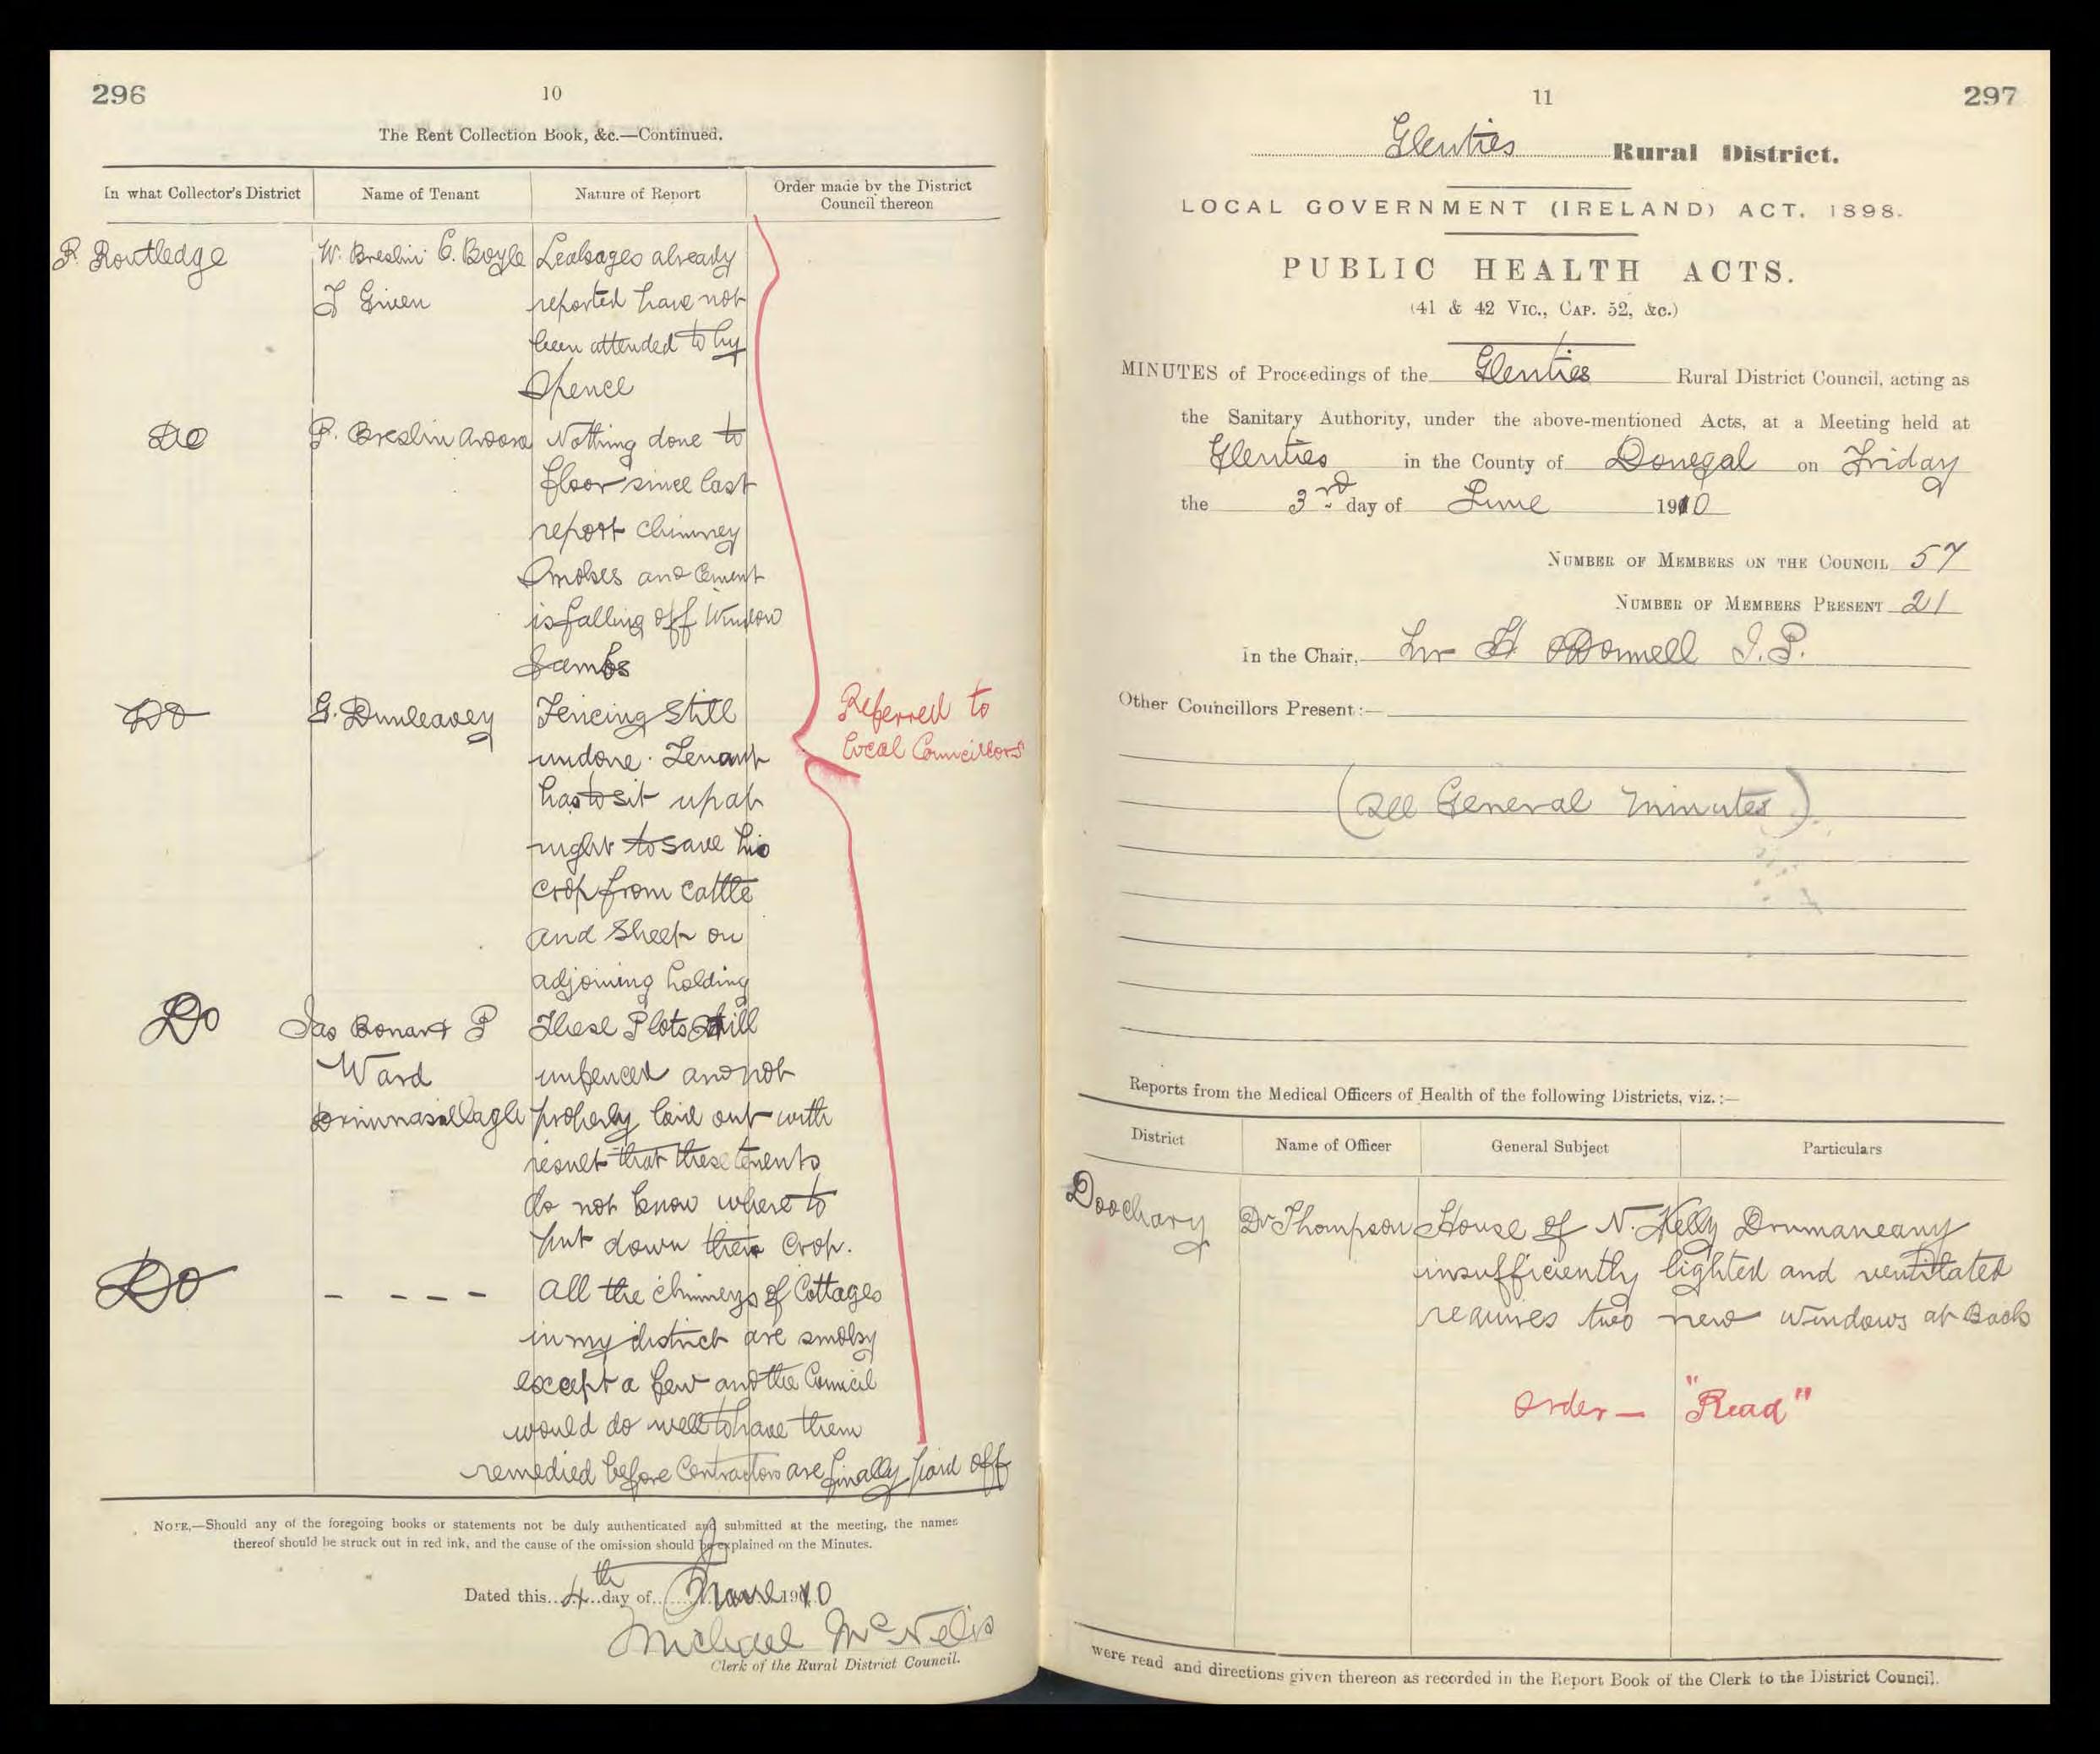 296
10
The Rent Collection Book, &c.—Continued.
In what Collector's District
Name of Tenant
Nature of Report
Order made by the District
Council thereon
P. Routledge
W. Breslin C. Boyle
Leakages already
J Given
reported have not
been attended to by
Spence
Do
P. Breslin
Nothing done to
floor since last
report chimney
Smokes and Cement
is falling off Window
Jambs
Do
G. Dunleavey
Fencing Still
undone. Tenant
has to sit up at
night to save his
crop from cattle
and Sheep on
adjoining holding
Referred to
local Councillors
Do
Jas Bonar & P
These Plots Still
Ward
unfenced and not
properly laid out with
result that these tenents
do not know where to
put down their Crop.
Do
- - - - -
All the chimneys of Cottages
in my district are smoky
except a few and the Council
would do well to have them
remedied before Contractors are finally paid off
NOTE,—Should any of the foregoing books or statements not be duly authenticated and submitted at the meeting, the names
thereof should be struck out in red ink, and the cause of the omission should be explained on the Minutes.
Dated this 4th day of June 1910
Michael McNelis
Clerk of the Rural District Council.
11
297
Glenties Rural District.
LOCAL GOVERNMENT (IRELAND) ACT, 1898.
PUBLIC HEALTH ACTS.
(41 & 42 VIC., CAP. 52, &c.)
MINUTES of Proceedings of the Glenties Rural District Council, acting as
the Sanitary Authority, under the above-mentioned Acts, at a Meeting held at
Glenties in the County of Donegal on Friday
the 3rd day of June 1910
NUMBER OF MEMBERS ON THE COUNCIL 57
NUMBER OF MEMBERS PRESENT 21
in the Chair, O'Donnell J.P.
Other Councillors Present:—
(See General Minutes)
Reports from the Medical Officers of Health of the following Districts, viz.:—
District
Name of Officer
General Subject
Particulars
Doochary
Dr Thompson
House of N. Kelly Drumaneany
insufficiently lighted and ventilated
requires two new windows at Back
Order — "Read"
were read and directions given thereon as recorded in the Report Book of the Clerk to the District Council.